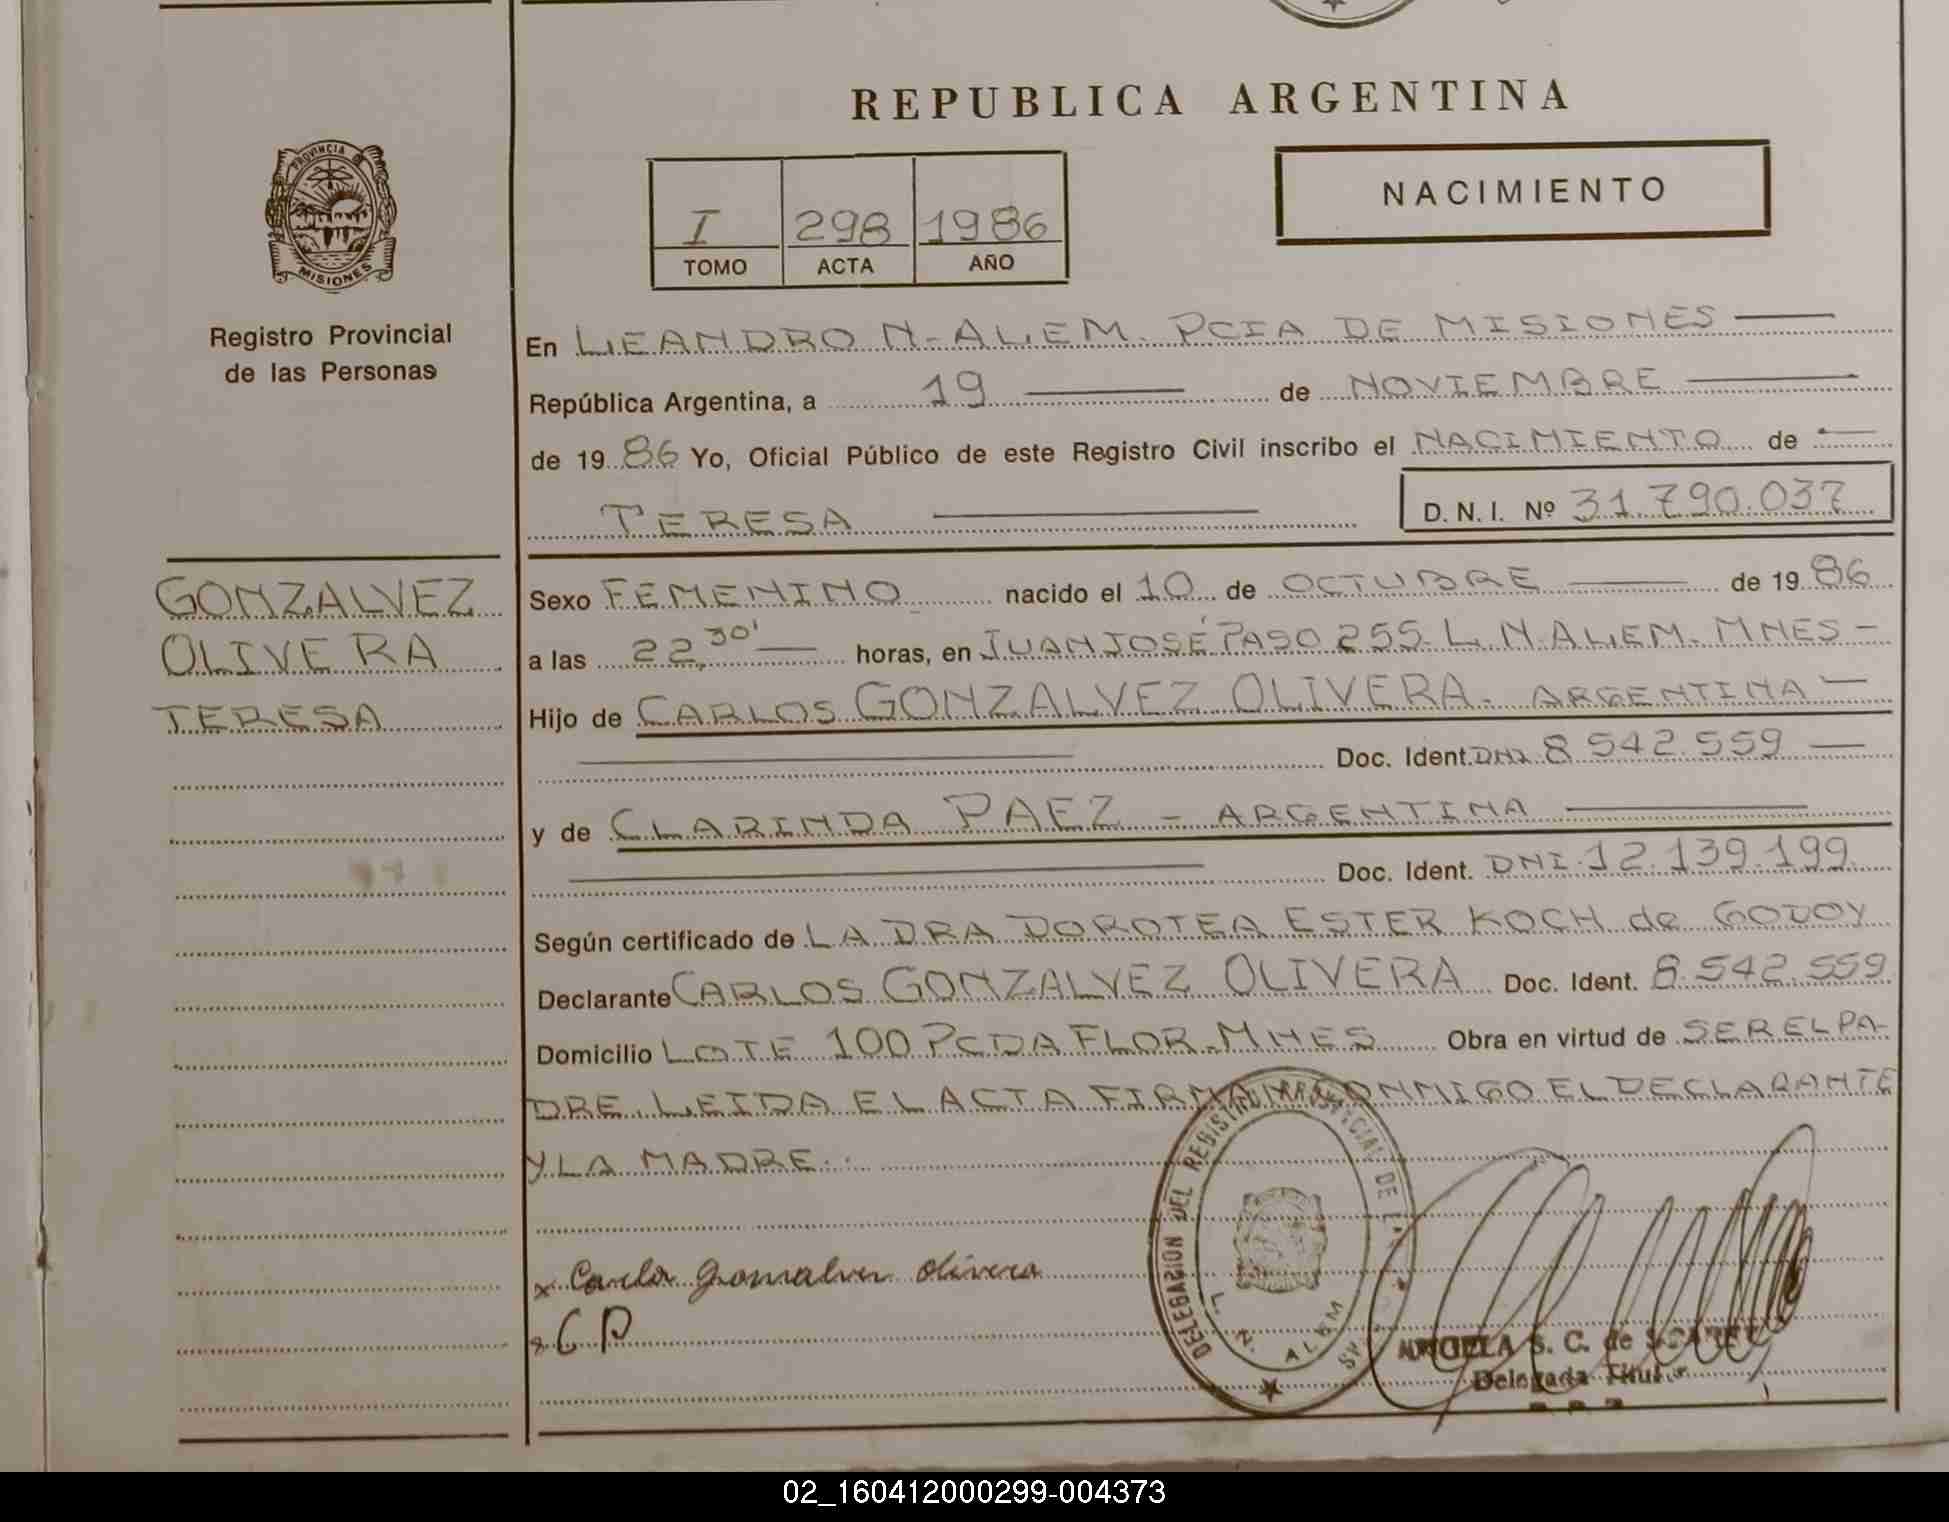 REPUBLICA ARGENTINA
NACIMIENTO
I 298 1986
TOMO ACTA AÑO
PROVINCIA DE
MISIONES
Registro Provincial
de las Personas
En LEANDRO N. ALEM. PCIA DE MISIONES
República Argentina, a 19 de NOVIEMBRE
de 1986 Yo, Oficial Público de este Registro Civil inscribo el NACIMIENTO de
TERESA
D. N. I. Nº 31.790.037
GONZALVEZ
OLIVERA
TERESA
Sexo FEMENINO nacido el 10 de OCTUBRE de 1986
a las 22,30' horas, en JUAN JOSÉ PASO 255. L. N. ALEM. MNES-
Hijo de CARLOS GONZALVEZ OLIVERA. ARGENTINA
Doc. Ident. DNI. 8.542.559
y de CLARINDA PAEZ - ARGENTINA
Doc. Ident. DNI. 12.139.199
Según certificado de LA DRA DOROTEA ESTER KOCH de GODOY
Declarante CARLOS GONZALVEZ OLIVERA Doc. Ident. 8.542.559
Domicilio LOTE 100 PCDA FLOR. MNES Obra en virtud de SER EL PA-
DRE. LEIDA EL ACTA FIRMAN CONMIGO EL DECLARANTE
Y LA MADRE.
x Carlos Gonzalvez Olivera
x C P
DELEGACION DEL REGISTRO PROVINCIAL DE LAS
L. N. ALEM
S. C. de
Delegada Titular
02_160412000299-004373